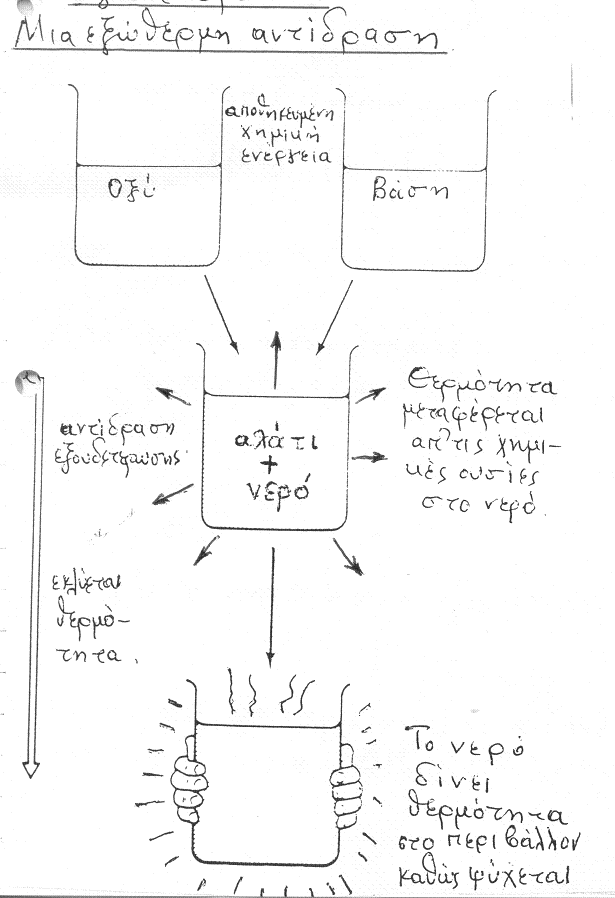 Μια εξώθερμη αντίδραση
αποθηκευμένη
χημική
ενέργεια
Οξύ
Βάση
αντίδραση
εξουδετέρωσης
αλάτι
+
νερό
Θερμότητα
μεταφέρεται
απ'τις χημι-
κές ουσίες
στο νερό.
εκλύεται
θερμό-
τητα.
Το νερό
δίνει
θερμότητα
στο περιβάλλον
καθώς ψύχεται